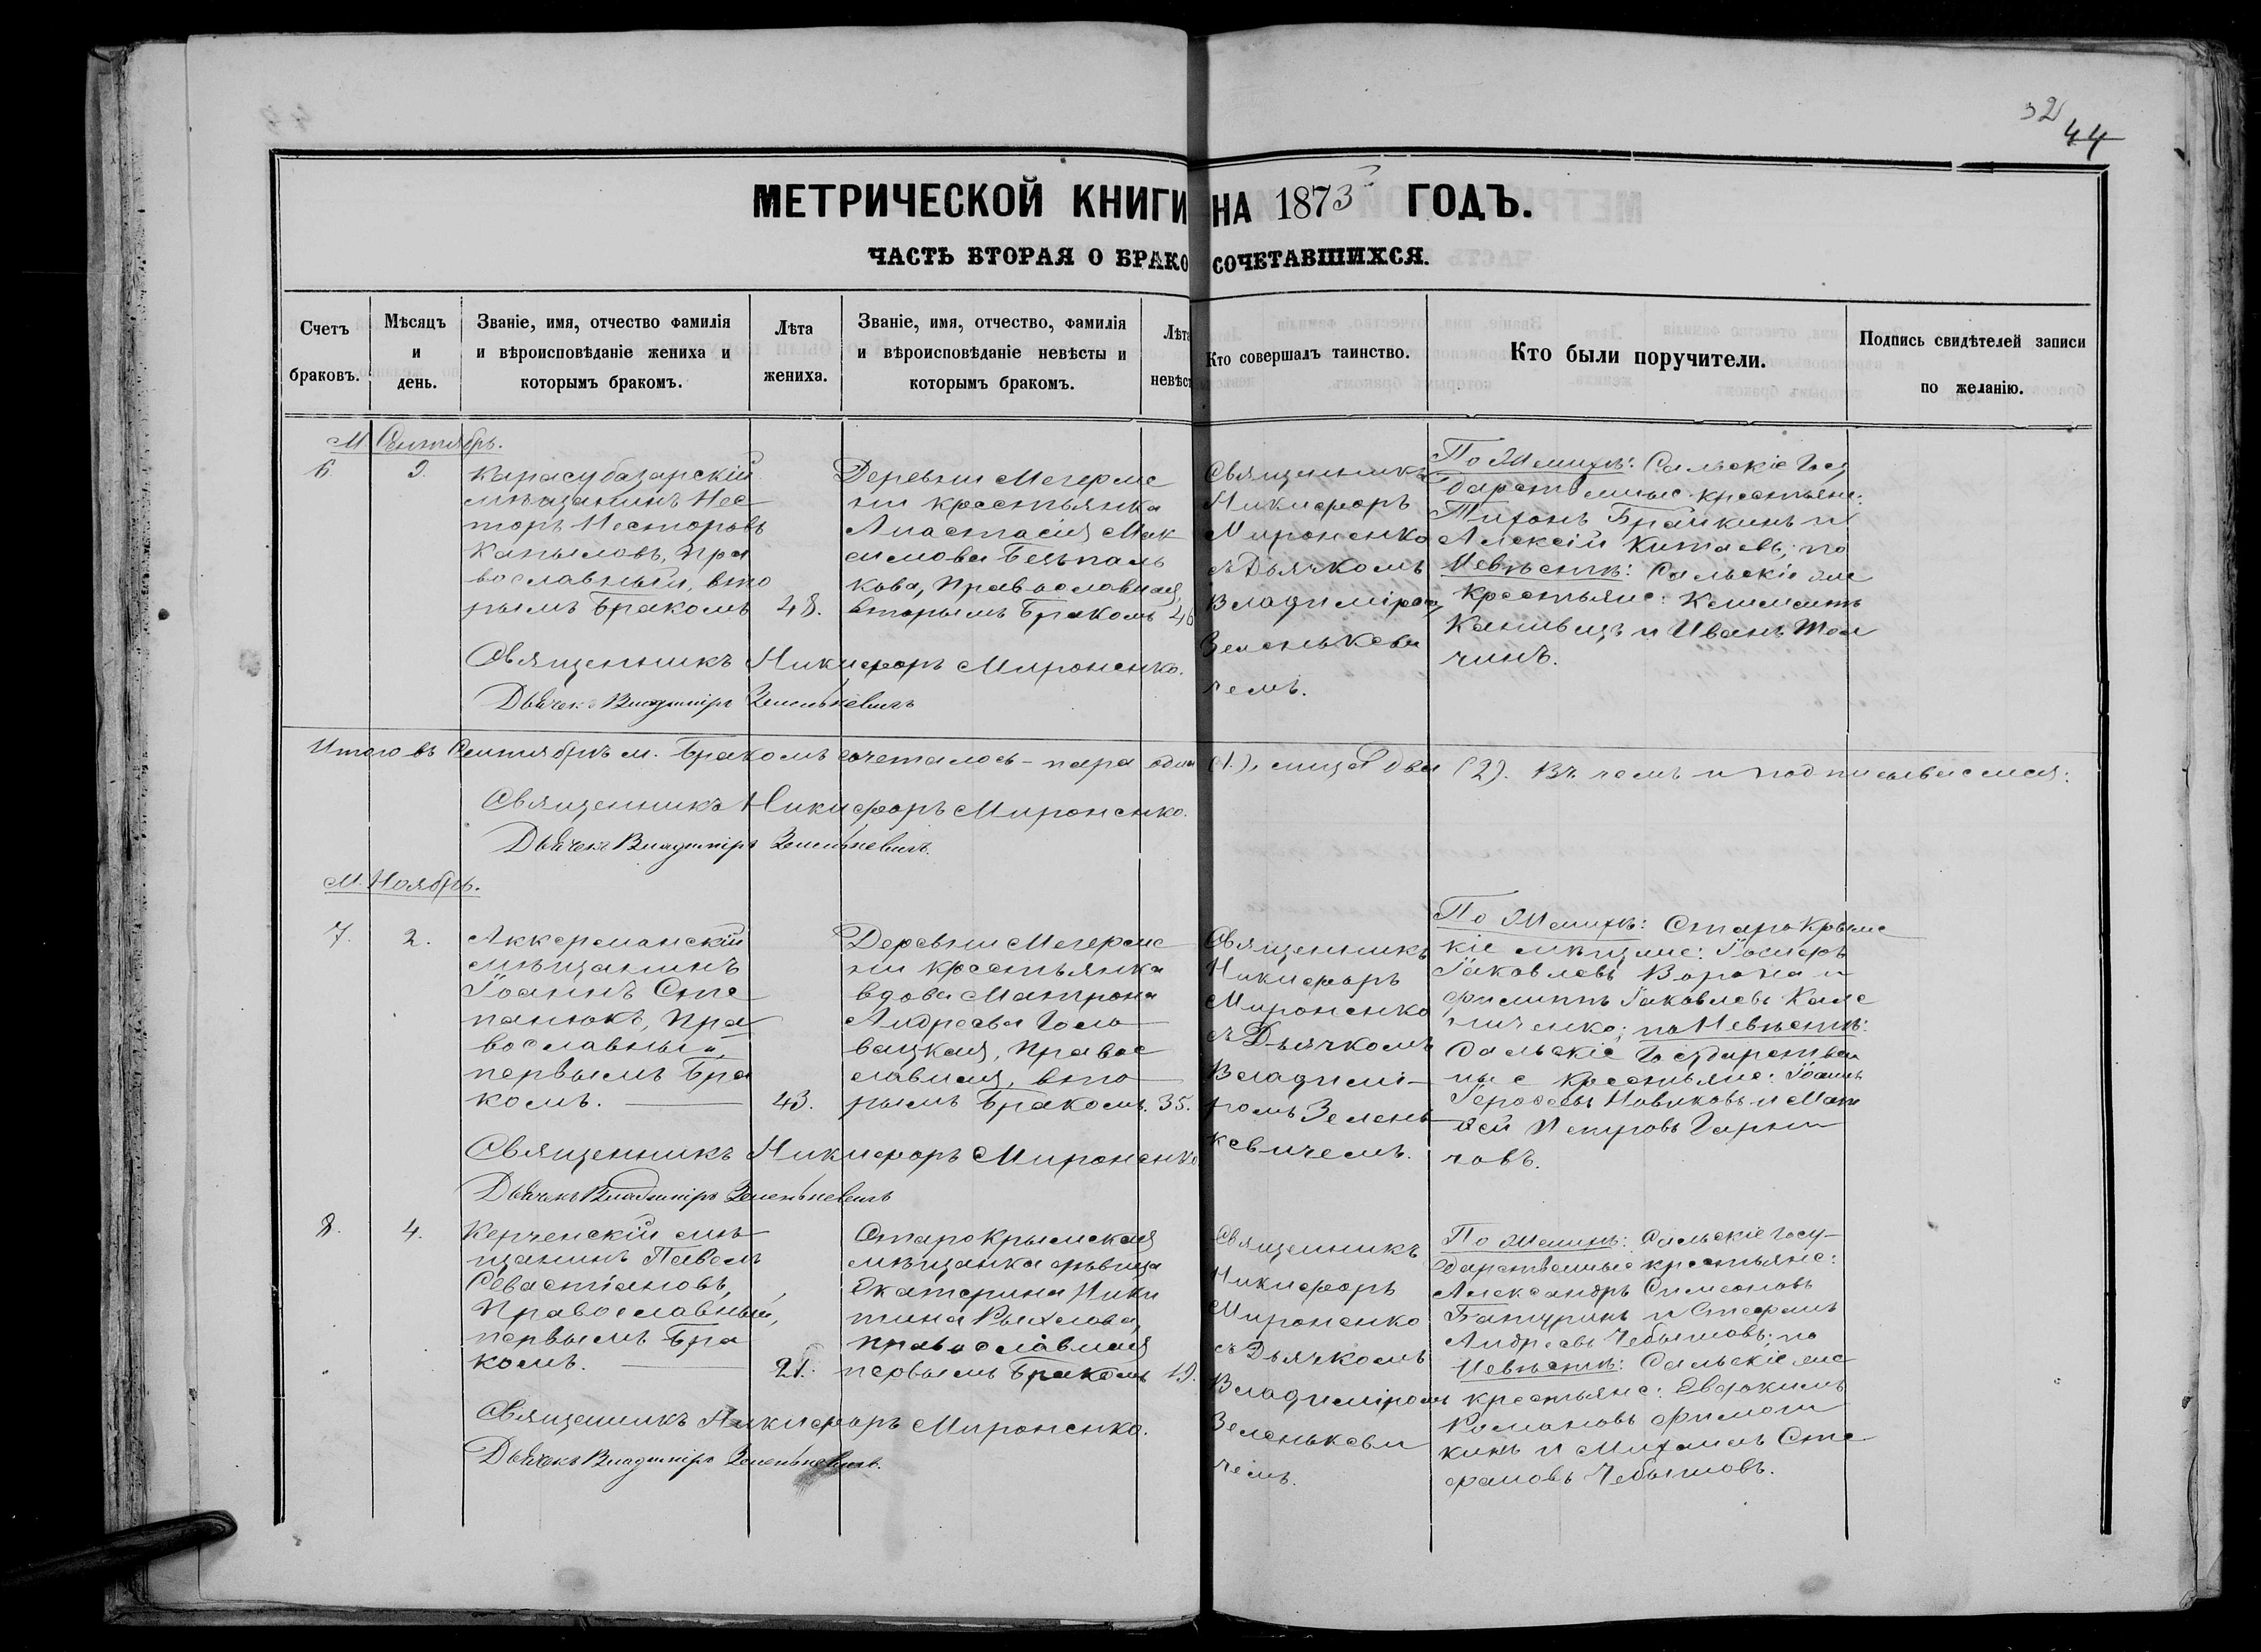 32
44
МЕТРИЧЕСКОЙ КНИГИ НА 1873 ГОДЪ.
ЧАСТЬ ВТОРАЯ О БРАКОСОЧЕТАВШИХСЯ.
Счетъ браковъ.
Мѣсяцъ и день.
Званіе, имя, отчество фамилія
и вѣроисповѣданіе жениха и
которымъ бракомъ.
Лѣта жениха.
Званіе, имя, отчество, фамилія
и вѣроисповѣданіе невѣсты и
которымъ бракомъ.
Лѣта
невѣст
Кто совершалъ таинство.
Кто были поручители.
Подпись свидѣтелей записи
по желанію.
М. Сентябрь.
6
9.
Карасубазарскій
мѣщанинъ Нес
торъ Несторовъ
Капыловъ, Пра
вославный, вто
рымъ бракомъ
48.
Деревни Мегерме
ни крестьянка
Анастасія Мак
симова
кова, Православная,
вторымъ бракомъ
46
Священникъ
Никифоръ
Мироненко
съ Дьячкомъ
Владиміромъ
Зеленькеви
чемъ.
По Женихѣ: Сальскіе Госу
дарственные крестьяне:
Тихонъ Брайкинъ и
Алексій Китаевъ; по
Невѣстѣ: Сальскіе же
крестьяне: Климентъ
и Иванъ
чинъ.
Священникъ Никифоръ Мироненко.
Дьячекъ Владиміръ Зеленькевичъ
Итого въ Сентябрѣ м. бракомъ сочеталось - пара одна (1), лица два (2). Въ чемъ и подписываемся:
Священникъ Никифоръ Мироненко.
Дьячекъ Владиміръ Зеленькевичъ.
М. Ноябрь.
7.
2.
Аккерманскій
мѣщанинъ
Іоаннъ Сте
панюкъ, Пра
вославный,
первымъ бра
комъ.
43.
Деревни Мегерме
ни крестьянка
вдова Матрона
Андреева Голо
вацкая, Правос
лавная, вто
рымъ бракомъ.
35.
Священникъ
Никифоръ
Мироненко
съ Дьячкомъ
Владимі-
ромъ Зелень
кевичемъ.
По Женихѣ: Старокрымс
кіе мѣщане: Іосифъ
Іаковлевъ Ворона и
Филиппъ Іаковлевъ Кале
ниченко; по Невѣстѣ:
Сальскіе Государствен
ные крестьяне: Іоаннъ
Новиковъ и Мат
ѳей Петровъ
човъ.
Священникъ Никифоръ Мироненко
Дьячекъ Владиміръ Зеленькевичъ
8.
4.
Керченскій мѣ
щанинъ Павелъ
Севастіановъ,
Православный,
первымъ бра
комъ.
21.
Старокрымская
мѣщанка дѣвица
Екатерина Ники
тина Рыхлова,
православная
первымъ бракомъ
19.
Священникъ
Никифоръ
Мироненко
съ Дьячкомъ
Владиміромъ
Зеленькеви
чемъ.
По Женихѣ: Сальскіе Госу-
дарственные крестьяне:
Александръ Симеоновъ
Батуринъ и Стефанъ
Андреевъ Чебышовъ; по
Невѣстѣ: Сальскіе же
крестьяне: Евдокимъ
Романовъ Филош
кинъ и Михаилъ Сте
фановъ Чебышовъ.
Священникъ Никифоръ Мироненко.
Дьячекъ Владиміръ Зеленькевичъ.